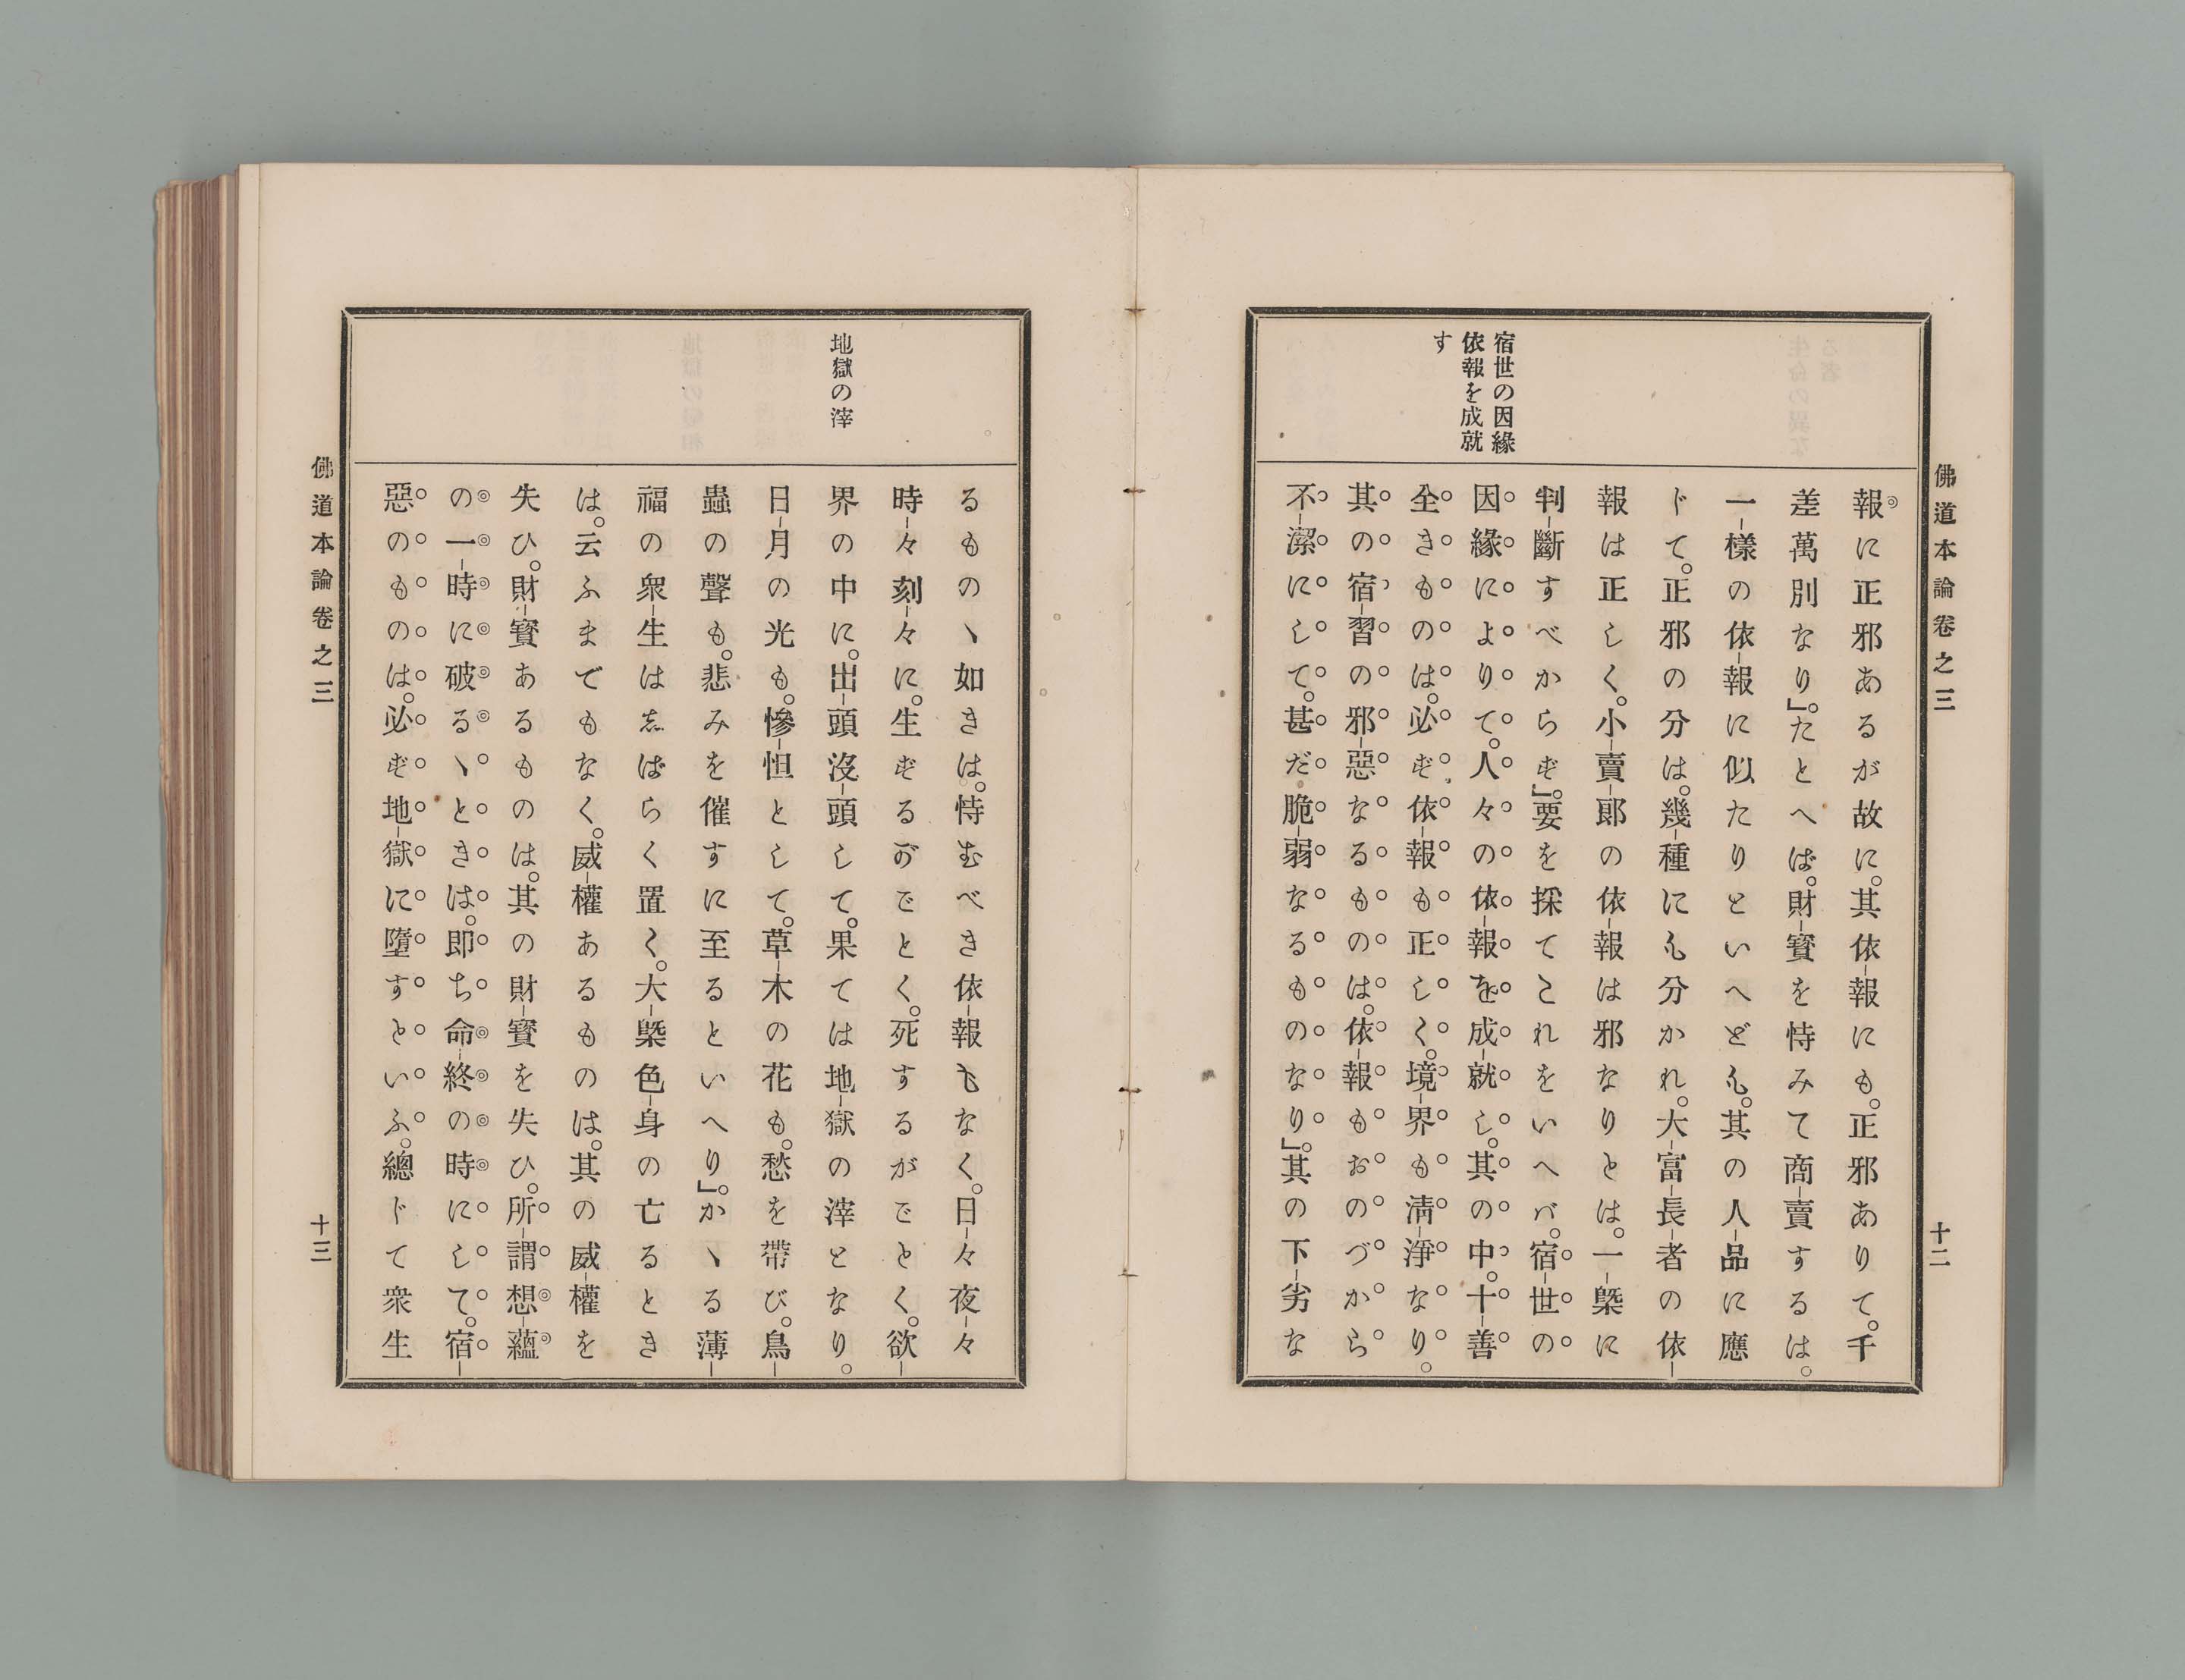 佛道本論卷之三
十二
宿世の因緣
依報を成就
す
報に正邪あるが故に。其依報にも。正邪ありて。千
差萬別なり」。たとへば。財寳を恃みて商賣するは。
一樣の依報に似たりといへども。其の人品に應
じて。正邪の分は。幾種にも分かれ。大富長者の依
報は正しく。小賣郎の依報は邪なりとは。一槩に
判斷すべからず」。要を採てこれをいへバ。宿世の
因緣によりて。人々の依報を成就し。其の中。十善
全きものは。必ず依報も正しく。境界も淸淨なり。
其の宿習の邪惡なるものは。依報もおのづから
不潔にして。甚だ脆弱なるものなり」。其の下劣な
地獄の滓
るものヽ如きは。恃むべき依報もなく。日々夜々
時々刻々に。生ずるがごとく。死するがごとく。欲
界の中に。出頭沒頭して。果ては地獄の滓となり。
日月の光も。慘怛として。草木の花も。愁を帶び。鳥
蟲の聲も。悲みを催すに至るといへり」。かヽる薄
福の衆生はしばらく置く。大槩色身の亡るとき
は。云ふまでもなく。威權あるものは。其の威權を
失ひ。財寳あるものは。其の財寳を失ひ。所謂想蘊
の一時に破るヽときは。卽ち命終の時にして。宿
惡のものは。必ず地獄に墮すといふ。總じて衆生
佛道本論卷之三
十三